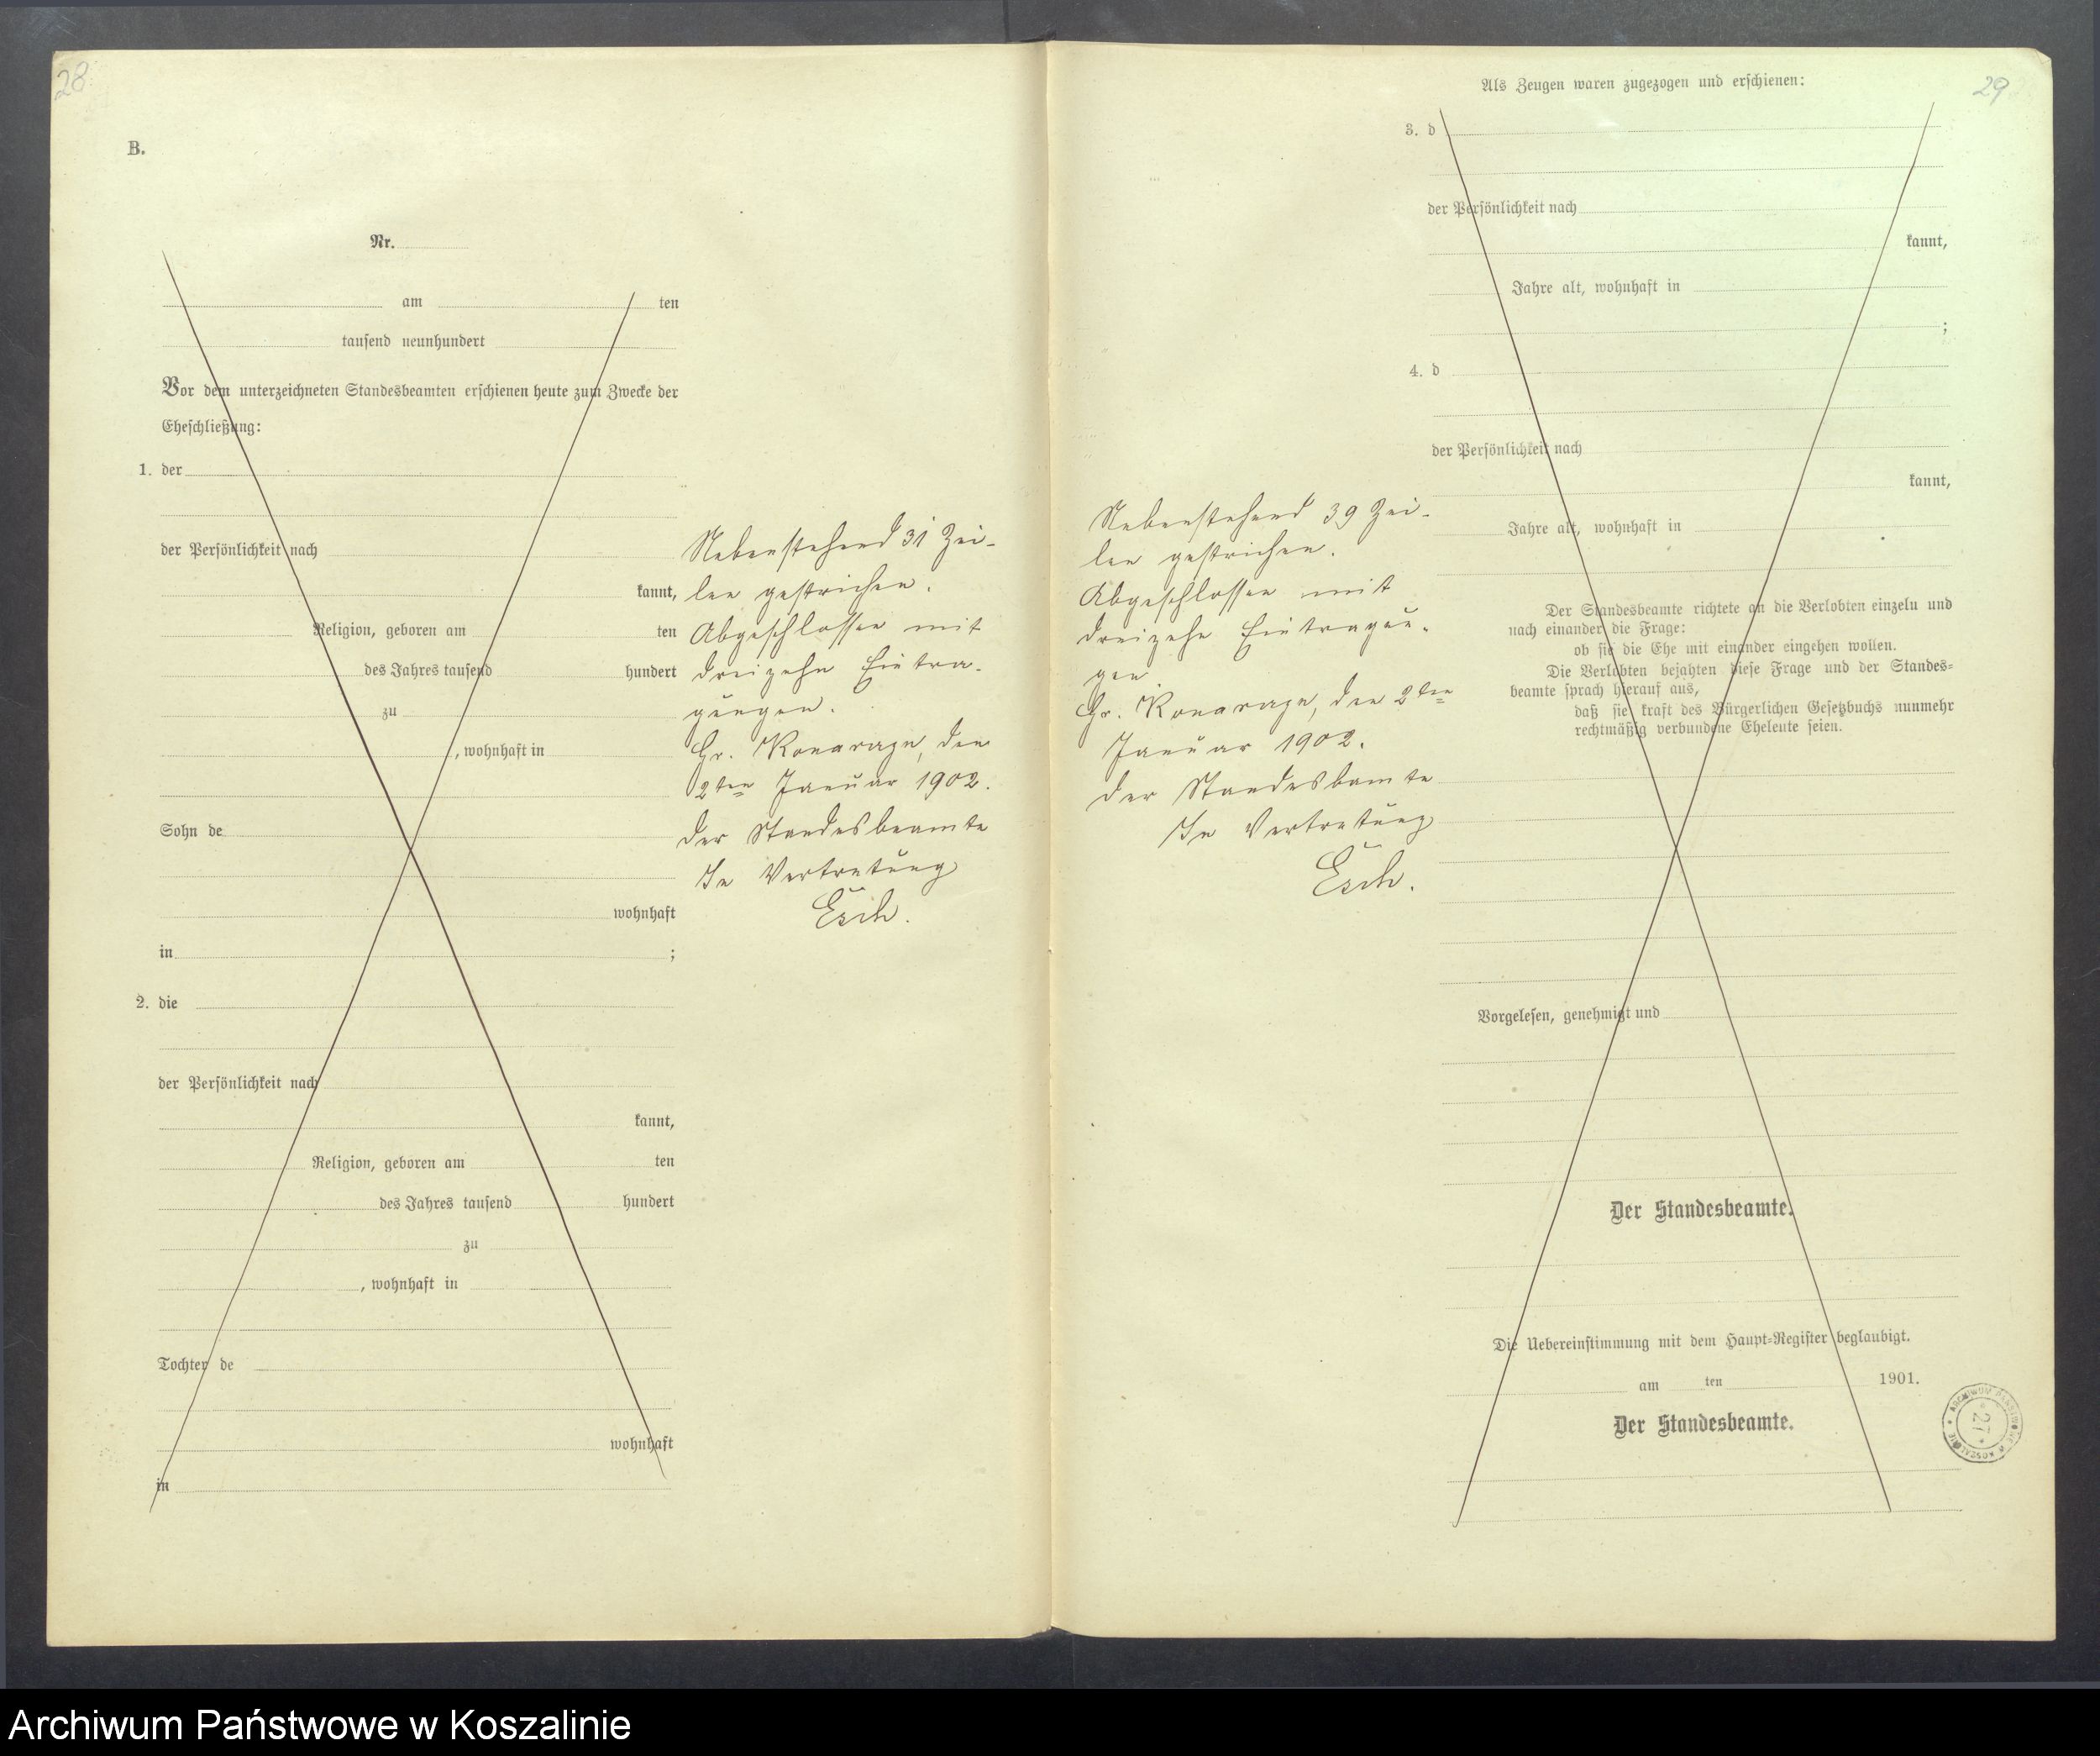 28
B.
Nr.
am ten
tausend neunhundert
Vor dem unterzeichneten Standesbeamten erschienen heute zum Zwecke der
Eheschließung:
1. der
der Persönlichkeit nach
kannt,
Religion, geboren am ten
des Jahres tausend hundert
zu
, wohnhaft in
Sohn de
wohnhaft
in ;
2. die
der Persönlichkeit nach
kannt,
Religion, geboren am ten
des Jahres tausend hundert
zu
, wohnhaft in
Tochter de
wohnhaft
in
Nebenstehend 31 Zei-
len gestrichen.
Abgeschlossen mit
dreizehn Eintra-
gungen.
Gr. Konarczyn, den
2ten Januar 1902.
Der Standesbeamte
In Vertretung
Esch.
29
Als Zeugen waren zugezogen und erschienen:
3. d
der Persönlichkeit nach
kannt,
Jahre alt, wohnhaft in
;
4. d
der Persönlichkeit nach
kannt,
Jahre alt, wohnhaft in
Nebenstehend 39 Zei-
len gestrichen.
Abgeschlossen mit
dreizehn Eintragun-
gen.
Gr. Konarczyn, den 2ten
Januar 1902.
Der Standesbamte
In Vertretung
Esch.
Der Standesbeamte richtete an die Verlobten einzeln und
nach einander die Frage:
ob sie die Ehe mit einander eingehen wollen.
Die Verlobten bejahten diese Frage und der Standes-
beamte sprach hierauf aus,
daß sie kraft des Bürgerlichen Gesetzbuchs nunmehr
rechtmäßig verbundene Eheleute seien.
Vorgelesen, genehmigt und
Der Standesbeamte.
Die Uebereinstimmung mit dem Haupt-Register beglaubigt.
am ten 1901.
Der Standesbeamte.
ARCHIWUM PAŃSTWOWE W KOSZALINIE
* 27 *
Archiwum Państwowe w Koszalinie